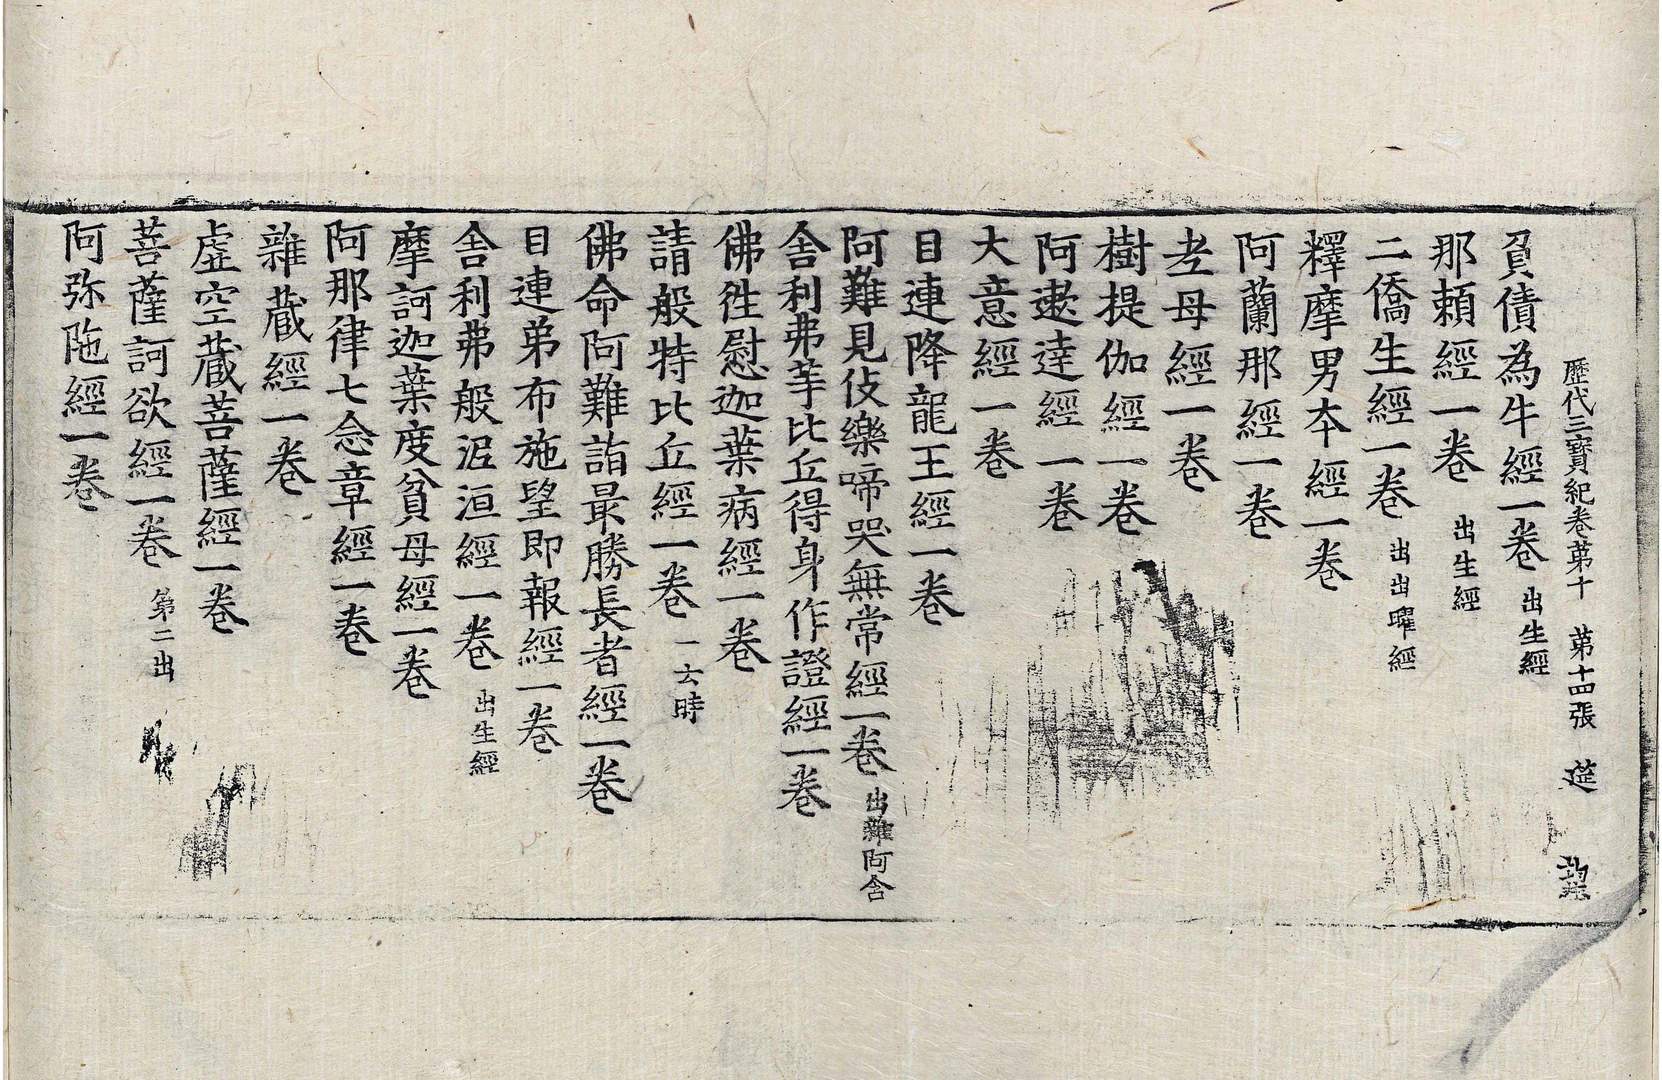 歷代三寶紀卷第十 第十四張 筵
負債為牛經一卷 出生經
那賴經一卷 出生經
二僑生經一卷 出出曜經
釋摩男本經一卷
阿蘭那經一卷
老母經一卷
樹提伽經一卷
阿遬達經一卷
大意經一卷
目連降龍王經一卷
阿難見伎樂啼哭無常經一卷 出雜阿含
舍利弗等比丘得身作證經一卷
佛往慰迦葉病經一卷
請般特比丘經一卷 一云時
佛命阿難詣最勝長者經一卷
目連弟布施望即報經一卷
舍利弗般泥洹經一卷 出生經
摩訶迦葉度貧母經一卷
阿那律七念章經一卷
雜藏經一卷
虛空藏菩薩經一卷
菩薩訶欲經一卷 第二出
阿弥陁經一卷